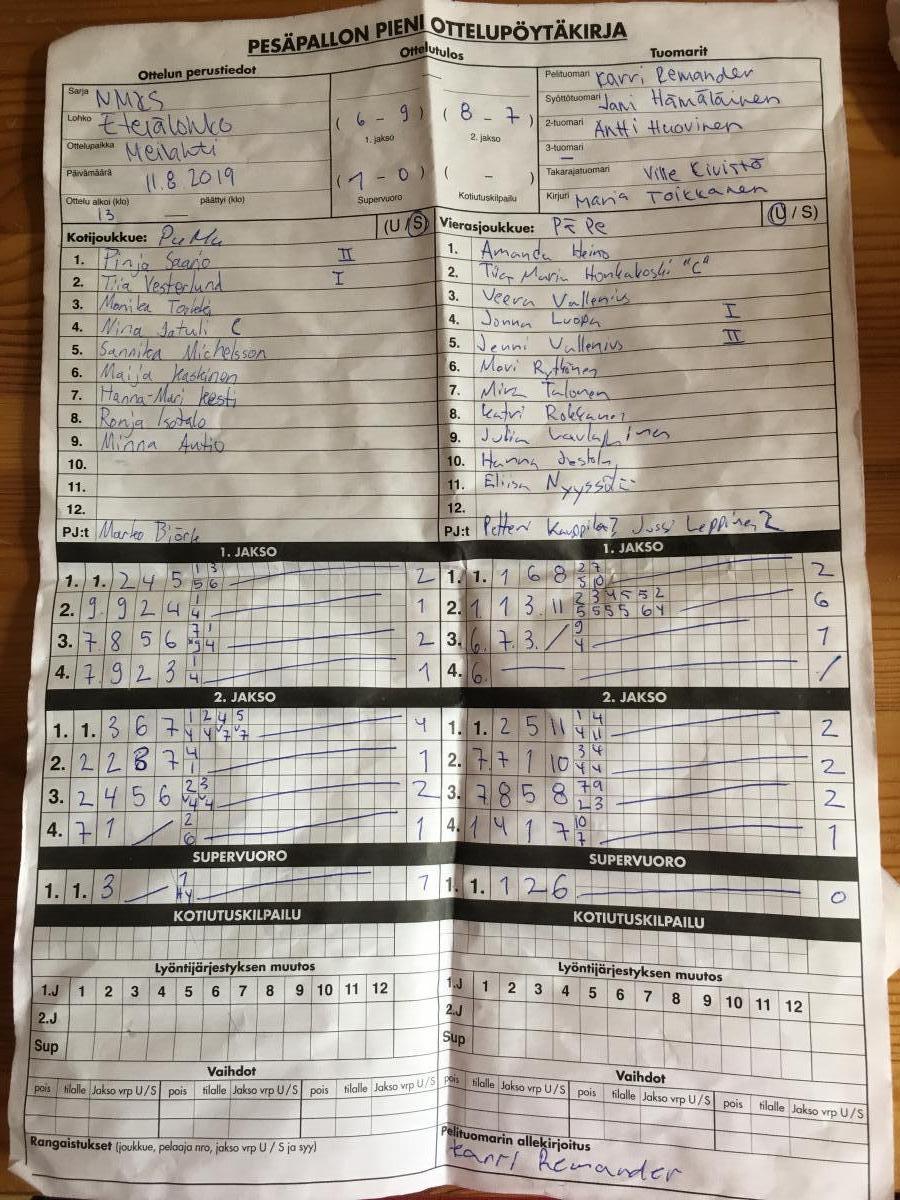 PESÄPALLON PIENI OTTELUPÖYTÄKIRJA
Ottelun perustiedot
Ottelutulos
Tuomarit
Sarja NMSS
Lohko Etelälohko
Ottelupaikka Meilahti
Päivämäärä 11.8.2019
Ottelu alkoi (klo) päättyi (klo)
13 —
( 6 - 9 ) ( 8 - 7 )
1. jakso 2. jakso
( 1 - 0 ) ( - )
Supervuoro Kotiutuskilpailu
Pelituomari Karri Remander
Syöttötuomari Jani Hämäläinen
2-tuomari Antti Huovinen
3-tuomari —
Takarajatuomari Ville Kivistö
Kirjuri Maria Toikkanen
Kotijoukkue: PuMu (U/S)
1. Pinja Saario II
2. Tiia Vesterlund I
3. Monika
4. Nina Jatuli C
5. Sannika Michelsson
6. Maija Kaskinen
7. Hanna-Mari Kesti
8. Ronja Isotalo
9. Minna Autio
10.
11.
12.
PJ:t Marko Björk
Vierasjoukkue: PePe (U/S)
1. Amanda Heino
2. Tiia Maria Honkakoski "C"
3. Veera Vallenius
4. Jonna Luopa I
5. Jenni Vallenius II
6. Mari Rytkönen
7. Mira Talonen
8. Katri Rokkanen
9. Julia
10. Hanna
11. Eliisa
12.
PJ:t Petteri Kauppila, Jussi Leppinen
1. JAKSO
1. 1. 2 4 5 1 3 2
5 6
2. 9. 9 2 4 1 1
4
3. 7. 8 5 6 7 1 2
4
4. 7. 9 2 3 1 1
4
1. JAKSO
1. 1. 1 6 8 2 7 2
5 10
2. 1 1 3. 11 2 3 4 5 5 2 6
5 5 5 5 6 4
3. 6. 7. 3. / 9 1
4
4. 6. — /
2. JAKSO
1. 1. 3 6 7 1 2 4 5 4
4 4 7 7
2. 2 2 8 7 4 1
1
3. 2 4 5 6 2 3 2
4 4
4. 7 1 / 2 1
6
2. JAKSO
1. 1. 2 5 11 1 4 2
4 11
2. 7. 7 1 10 3 4 2
4 4
3. 7 8 5 8 7 9 2
2 3
4. 1 4 1 7 10 1
7
SUPERVUORO
1. 1. 3 / 1 1
SUPERVUORO
1. 1. 1 2 6 0
KOTIUTUSKILPAILU
KOTIUTUSKILPAILU
Lyöntijärjestyksen muutos
1.J 1 2 3 4 5 6 7 8 9 10 11 12
2.J
Sup
Lyöntijärjestyksen muutos
1.J 1 2 3 4 5 6 7 8 9 10 11 12
2.J
Sup
Vaihdot
pois tilalle Jakso vrp U/S pois tilalle Jakso vrp U/S pois tilalle Jakso vrp U/S
Vaihdot
pois tilalle Jakso vrp U/S pois tilalle Jakso vrp U/S pois tilalle Jakso vrp U/S
Rangaistukset (joukkue, pelaaja nro, jakso vrp U/S ja syy)
Pelituomarin allekirjoitus
Karri Remander